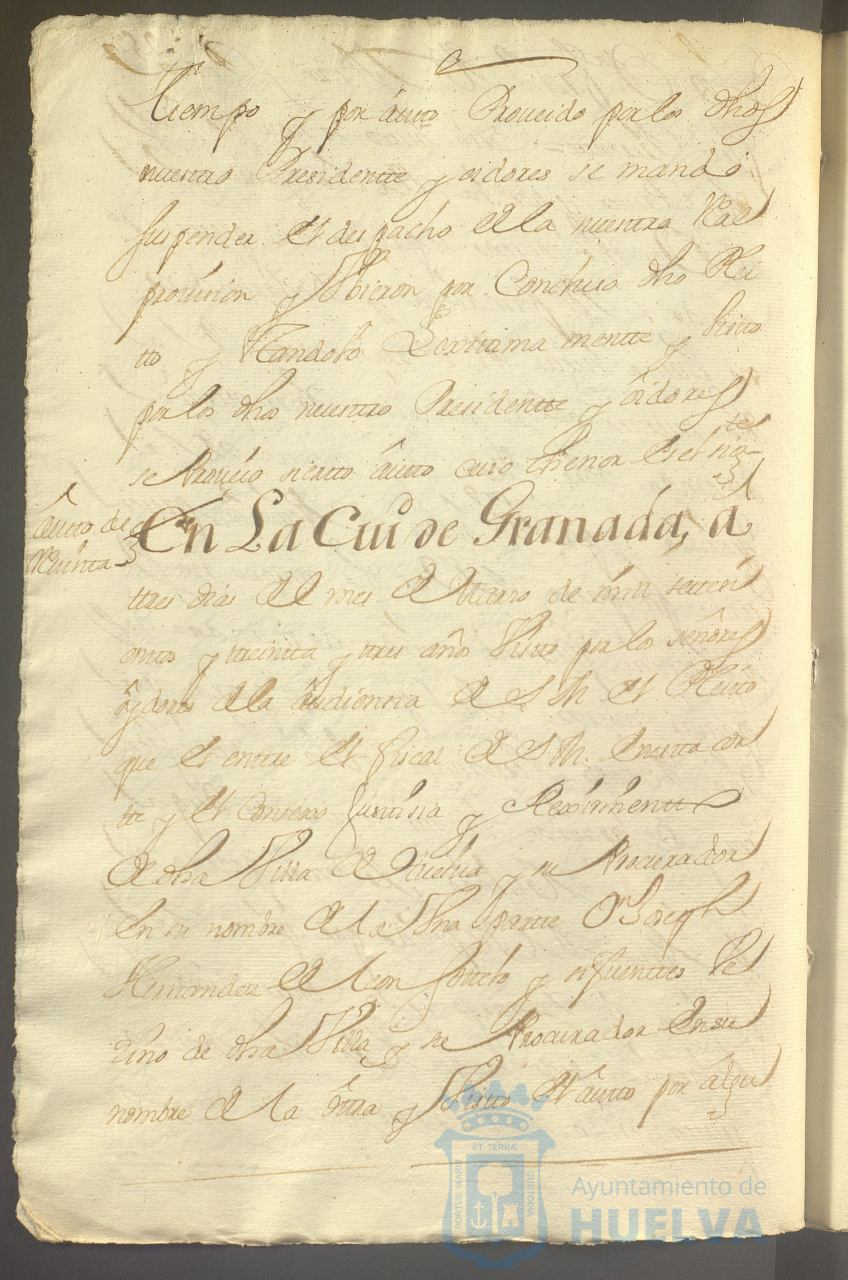 tiempo y por auto Proueido por los dhos
nuestro Presidentte y oidores se mando
suspender el despacho de la nuestra Real
prouision y Vbieron por Conclusa dho Plei
tto y Standolo Lexitima mentte y Uisto
por los dhos nuestro Presidentte y oidores
se Proueio ziertto auto cuio thenor es el sigte
Auto de
Reuista
En La Ciud de Granada, a
ttres dias del mes de Marzo de mill settezi
enttos y treintta y ttres años Visto por los señores
oydores de la audienzia de S M el Pleito
que es enttre el fiscal de S M. En estta cor
tte y el Consexo Justizia y Reximientto
de dha Villa de Huelua y su Procurador
En su nombre de la Una partte Dn Joseph
Hernandez de leon Sotelo y zifuenttes Ve
zino de dha Villa y su Procurador En su
nombre de la otra y Visto el auto por algu
ET TERRÆ
PORTUS MARIS
CUSTODIA
Ayuntamiento de
HUELVA